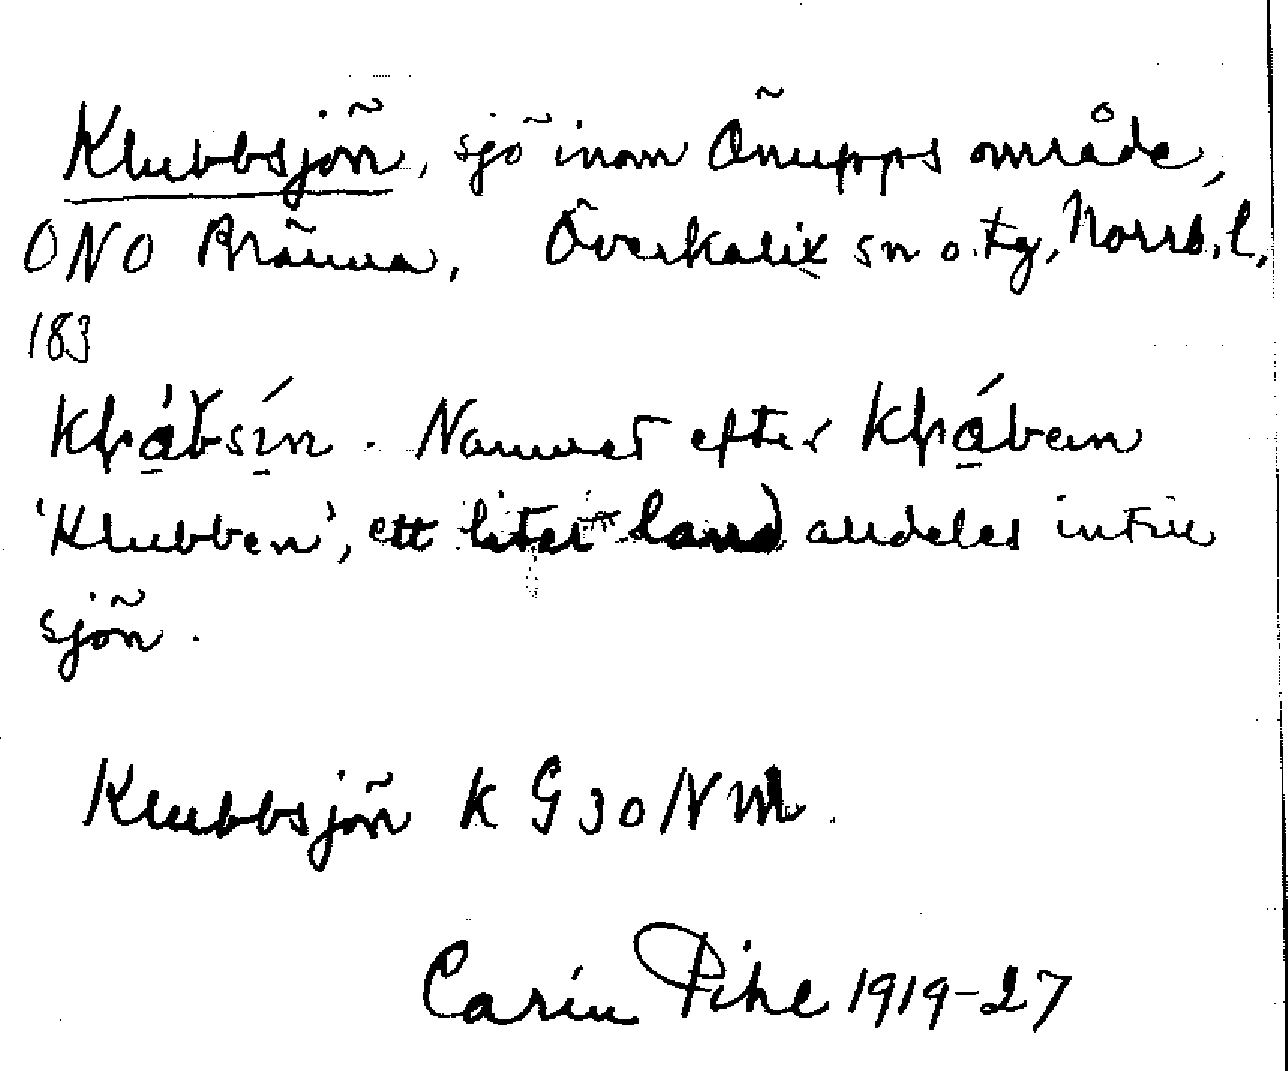 Klubbsjön, sjö inom Önupps område,
ONO Bränna, Överkalix sn o. tg, Norrb. l,
183
Namnet efter
'Klubben', ett litet land alldeles intill
sjön.
Klubbsjön K G30NM.
Carin Pihl 1919-27